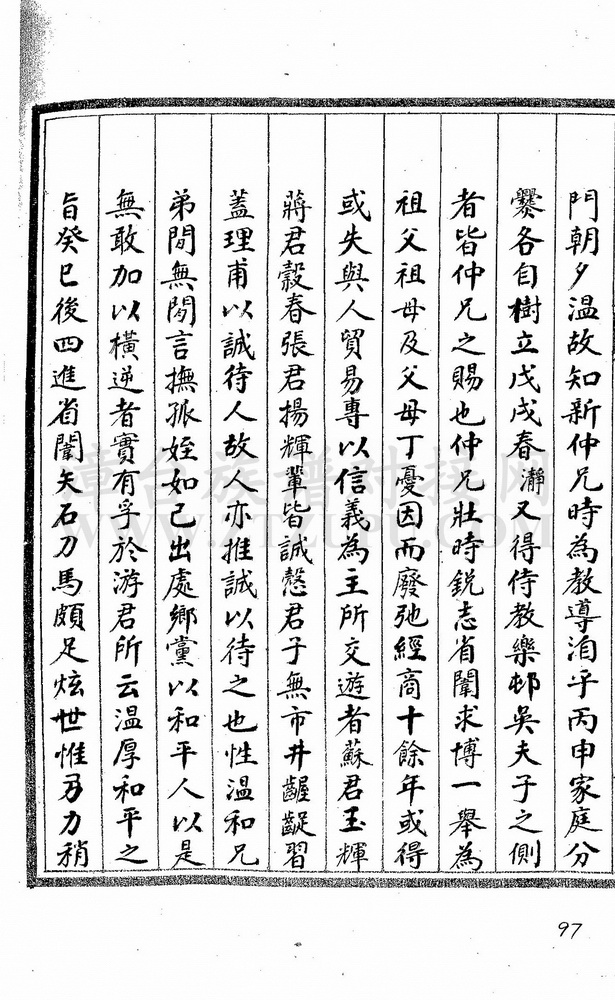 門朝夕温故知新仲兄時為教導洎乎丙申家庭分
爨各自樹立戊戌春瀞又得侍教樂邨吳夫子之側
者皆仲兄之賜也仲兄壯時銳志省闈求博一舉為
祖父祖母及父母丁憂因而廢弛經商十餘年或得
或失與人貿易專以信義為主所交遊者蘇君玉輝
蔣君穀春張君揚輝輩皆誠慤君子無市井齷齪習
蓋理甫以誠待人故人亦推誠以待之也性温和兄
弟間無閒言撫孤姪如己出處鄉黨以和平人以是
無敢加以橫逆者實有孚於游君所云温厚和平之
旨癸巳後四進省闈矢石刀馬頗足炫世惟弓力稍
漳台族譜對接網
WWW.ZTZUPU.COM
97